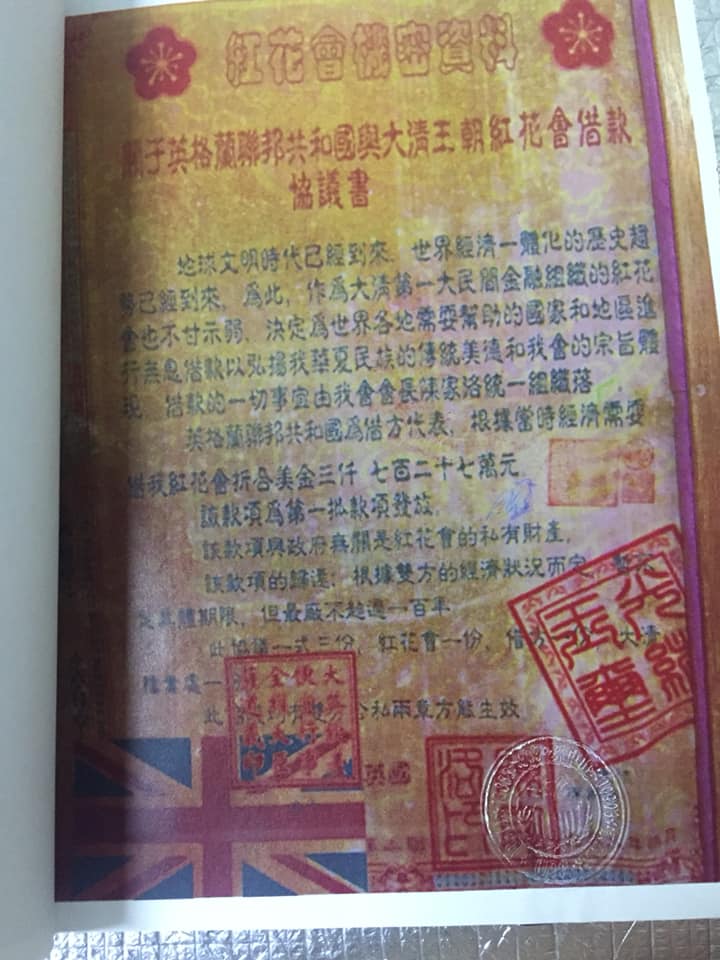 紅花會機密資料
關于英格蘭聯邦共和國與大清王朝紅花會借款
協議書
地球文明時代已經到來，世界經濟一體化的歷史趨
勢已經到來，爲此，作爲大清第一大民間金融組織的紅花
會也不甘示弱，決定爲世界各地需要幫助的國家和地區進
行無息借款以弘揚我華夏民族的傳統美德和我會的宗旨體
現，借款的一切事宜由我會會長陳家洛統一組織落
英格蘭聯邦共和國爲借方代表，根據當時經濟需要
借我紅花會折合美金三仟 七百二十七萬元
該款項爲第一批款項發放，
該款項與政府無關是紅花會的私有財產，
該款項的歸還，根據雙方的經濟狀況而定，
具體期限，但最廠不超過一百年
此協議一式三份，紅花會一份，借方 大清
檔案處一
此 公私兩章方能生效
光緒
玉璽
英國